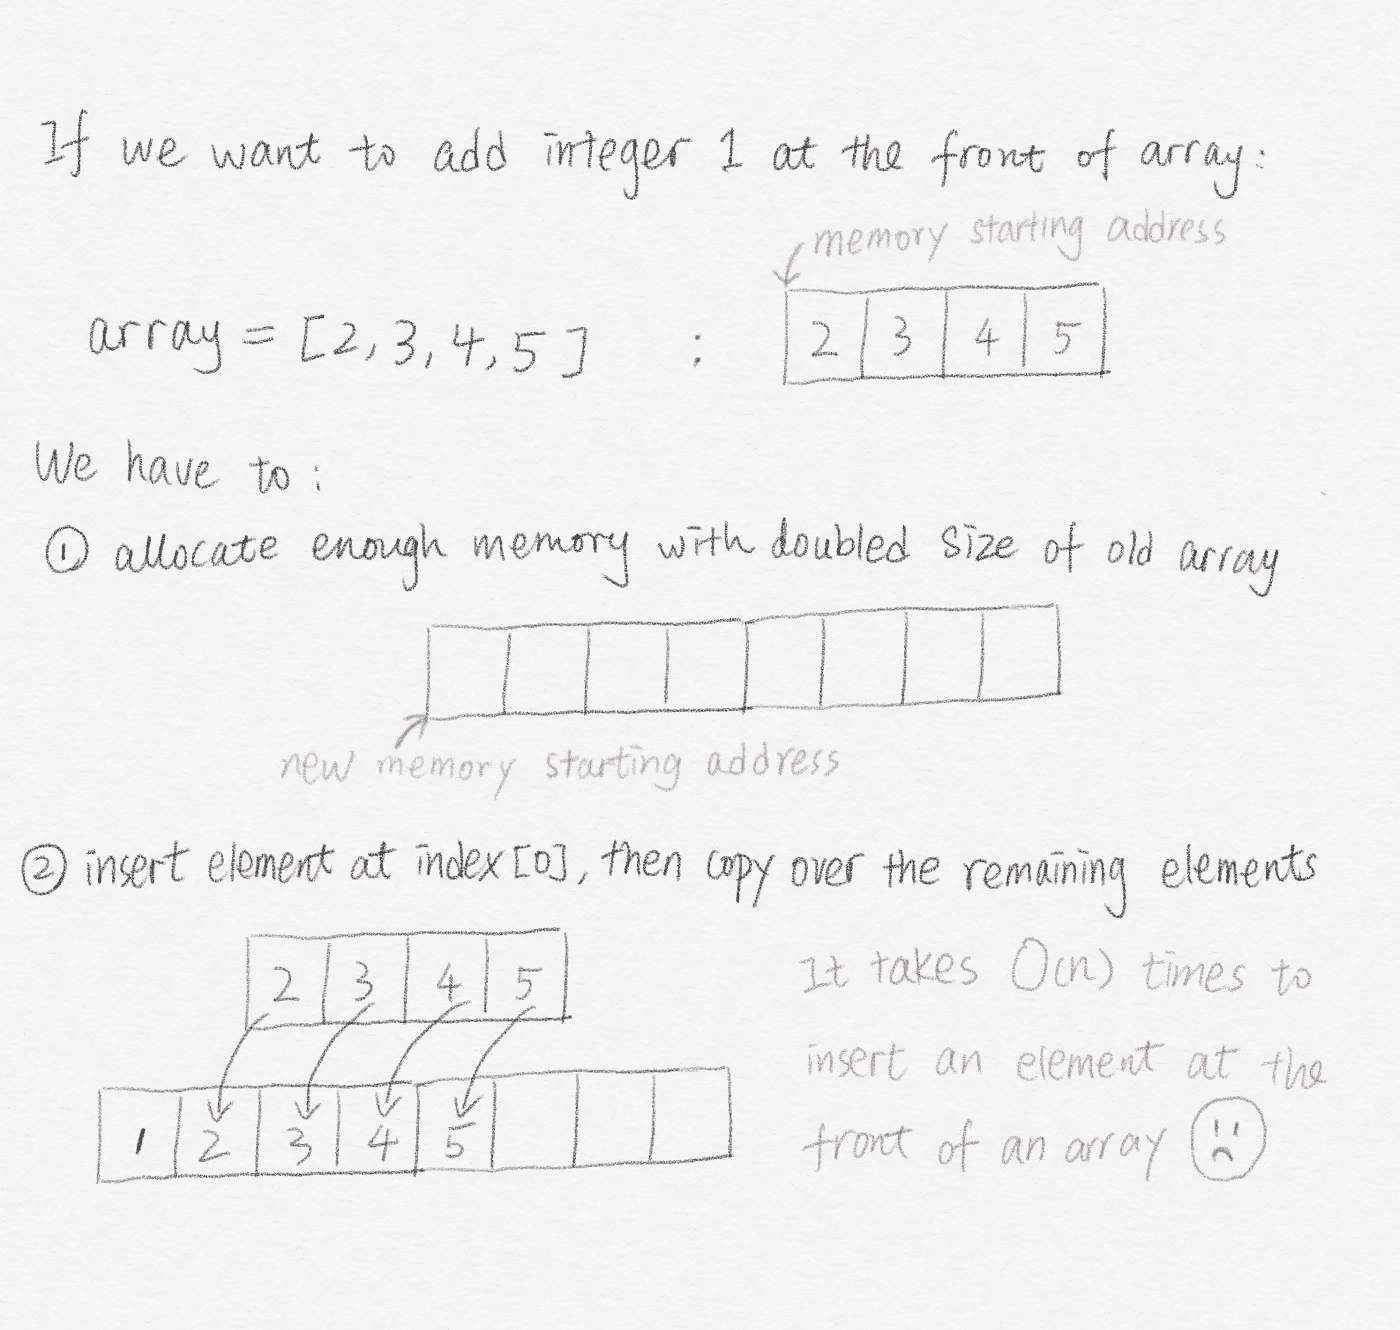 If we want to add integer 1 at the front of array:
memory starting address
array = [2, 3, 4, 5] : 2 3 4 5
We have to:
① allocate enough memory with doubled size of old array
new memory starting address
② insert element at index[0], then copy over the remaining elements
2 3 4 5
1 2 3 4 5
It takes O(n) times to
insert an element at the
front of an array